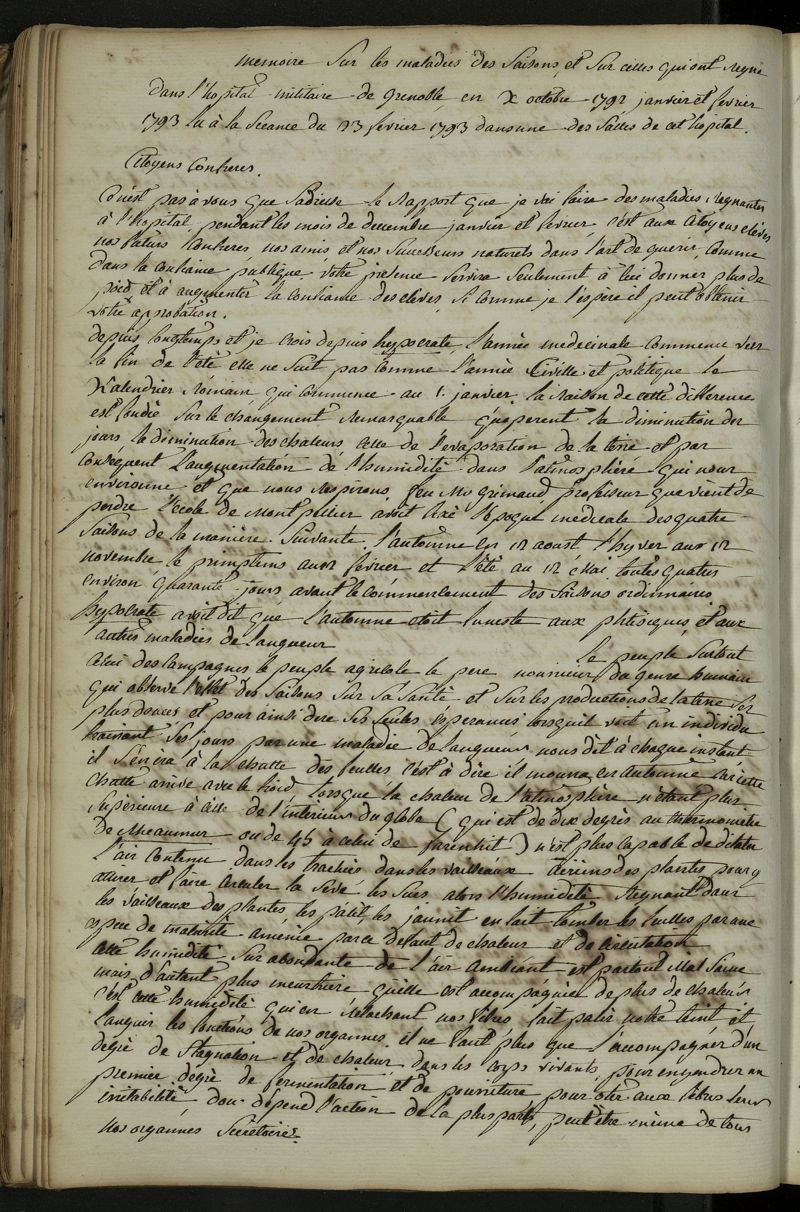 memoire Sur les maladies des Saisons, et Sur celles qui ont Regné
dans l'hopital militaire de grenoble en X octobre 1792 janvier et fevrier
1793 lu à la Seance du 23 fevrier 1793 dans une des Salles de cet hopital.
Citoyens Confreres.
Ce n'est pas à vous que J'adresse le Rapport que je vai faire des maladies Regnantes
à l'hopital pendant les mois de decembre janvier et fevrier, c'est aux Citoyens elèves
nos futurs Confreres nos amis et nos Successeurs naturels dans l'art de guerir, Comme
dans la Confiance publique, votre presence Servira Seulement à lui donner plus de
poid et à augmenter la Confiance des elèves, Si Comme je l'espère il peut obtenir
votre approbation.
depuis longtemps et je crois depuis hypocrate, l'année medecinale Commence vers
la fin de l'eté elle ne Suit pas Comme l'année Civille et politique le
Kalendrier Romain qui Commence au 1. janvier, la Raison de cette difference
est fondée Sur le changement Remarquable qu'operent la diminution des
jours la diminution des chaleurs celle de l'evaporation de la terre et par
Consequent l'augmentation de l'humidité dans l'atmosphère qui nous
environne et que nous Respirons, feu Mr grimaud professeur que vient de
perdre l'Ecole de Montpellier avoit fixé l'Epoque medicale des quatre
Saisons de la manière Suivante l'automne en 12 aoust l'hyver au 12
novembre le printems au 12 fevrier et l'eté au 12 Mai, toutes quatres
environ quarante jours avant le Commencement des Saisons ordinnaires
hypocrate avoit dit que l'automne etoit funeste aux phtisiques, et aux
autres maladies de langueur Le peuple Surtout
celui des Campagnes le peuple agricole le pere nourricier du genre humain
qui observe l'effet des Saisons Sur Sa Santé, et Sur les productions de la terre Ses
plus douces et pour ainsi dire Ses Seules esperances lorsquil voit un individu
trainant Ses jours par une maladie de langueur nous dit à chaque instant
il S'en ira à la chutte des feuilles c'est à dire il mourra en automne Car cette
chutte arrive avec le froid, lorsque la chaleur de l'atmosphère n'etant plus
Superieure à celle de l'interieur du globe (qui est de dix degrès au thermometre
De Rheaumur ou de 45 à celui de farenhit) n'est plus Capable de dilater
l'air Contenu dans les trachées dans les vaisseaux Aëriens des plantes pour y
attirer et faire circuler la Séve les Sucs alors l'humidité Stagnant dans
les vaisseaux des plantes, les pálit, les jaunit en fait tomber les feuilles par une
espece de maturité amenée par ce defaut de chaleur et de Circulation
cette humidité Surabondante de l'air ambiant est partout Mal Saine
mais d'autent plus meurtriere quelle est accompagnée de plus de chaleur
c'est cette humidité qui en Relachant nos fibres fait palir notre teint et
languir les fonctions de nos organnes, il ne faut plus que l'accompagner d'un
degré de Stagnation et de chaleur dans les corps vivants, pour engendrer un
premier degré de fermentation et de pourriture pour oter aux fibres leur
irritabilité dou depend l'action de la plus part, peut etre même de tous
nos organnes Secretoires.